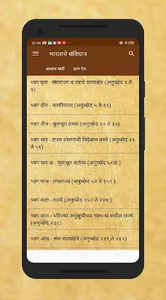 भारताचे संविधान
भाग एक - संघराज्य व त्याचे राज्यक्षेत्र (अनुच्छेद १ ते ४)
भाग दोन - नागरिकत्व (अनुच्छेद ५ ते ११)
भाग तीन - मूलभूत हक्क (अनुच्छेद १२ ते ३५)
भाग चार - राज्य धोरणाची निदेशक तत्त्वे (अनुच्छेद ३६ ते ५१)
भाग चार क - मूलभूत कर्तव्ये (अनुच्छेद ५१ क)
भाग पाच - संघराज्य (अनुच्छेद ५२ ते १५१)
भाग सहा - राज्ये (अनुच्छेद १५२ ते २३७)
भाग सात - पहिल्या अनुसूचीच्या भाग-ख मधील राज्ये (अनुच्छेद २३८)
भाग आठ - संघ राज्यक्षेत्रे (अनुच्छेद २३९ ते २४२)